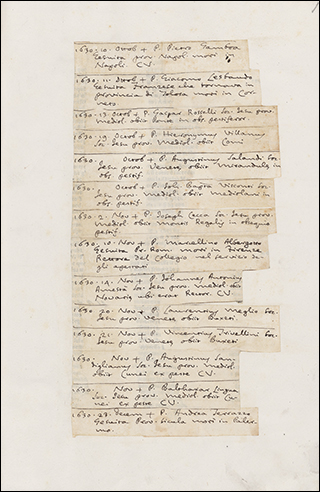 1630. 10. Octob + P. Pietro
Gesuita prov. Napol. morì in
Napoli. CV.
1630. 11. Octob + P. Giacomo
Gesuita Franzese che tornava in
provincia di Tolosa morì in
1630. 13. Octob + P. Gaspar Rosselli Soc. Jesu prov.
Mediol. obiit in obs. pestiferor.
1630. 19. Octob + P. Hieronymus Villanus
Soc. Jesu prov. Mediol. obiit Comi
1630. Octob + P. Augustinus Salandi Soc.
Jesu prov. Venet. obiit Mirandulę in
obs. pestif.
1630. Octob + P. Vicecomes Soc.
Jesu prov. Mediol. obiit Mediolani in
obs. pestif.
1630. 2. Nov + P. Joseph Cocca Soc. Jesu prov.
Mediol. obiit Montis Regalis in obsequio
pestif.
1630. 10. Nov + P. Marcellino Albergotto
Gesuita Prov. Rom. morì in Firenze
Rettore del Collegio nel servizio de
gli appestati
1630. 14. Nov + P. Johannes Antonius
Soc. Jesu prov. Mediol. obiit
Novarię ubi erat Rector. CV.
1630. 20. Nov + P. Laurentius Meglio Soc.
Jesu prov. Venet. obiit Busseti
1630. 21. Nov + P. Vincentius Trivellini Soc.
Jesu prov. Venet. obiit Busseti
1630. Nov + P. Augustinus San-
Soc. Jesu prov. Mediol.
obiit Cunei ex peste CV.
1630. Nov + P. Balthazar
Soc. Jesu prov. Mediol. obiit Cu-
nei ex peste CV.
1630. Decem + P. Andrea Serrano
Gesuita Prov. Sicula morì in Paler-
mo.